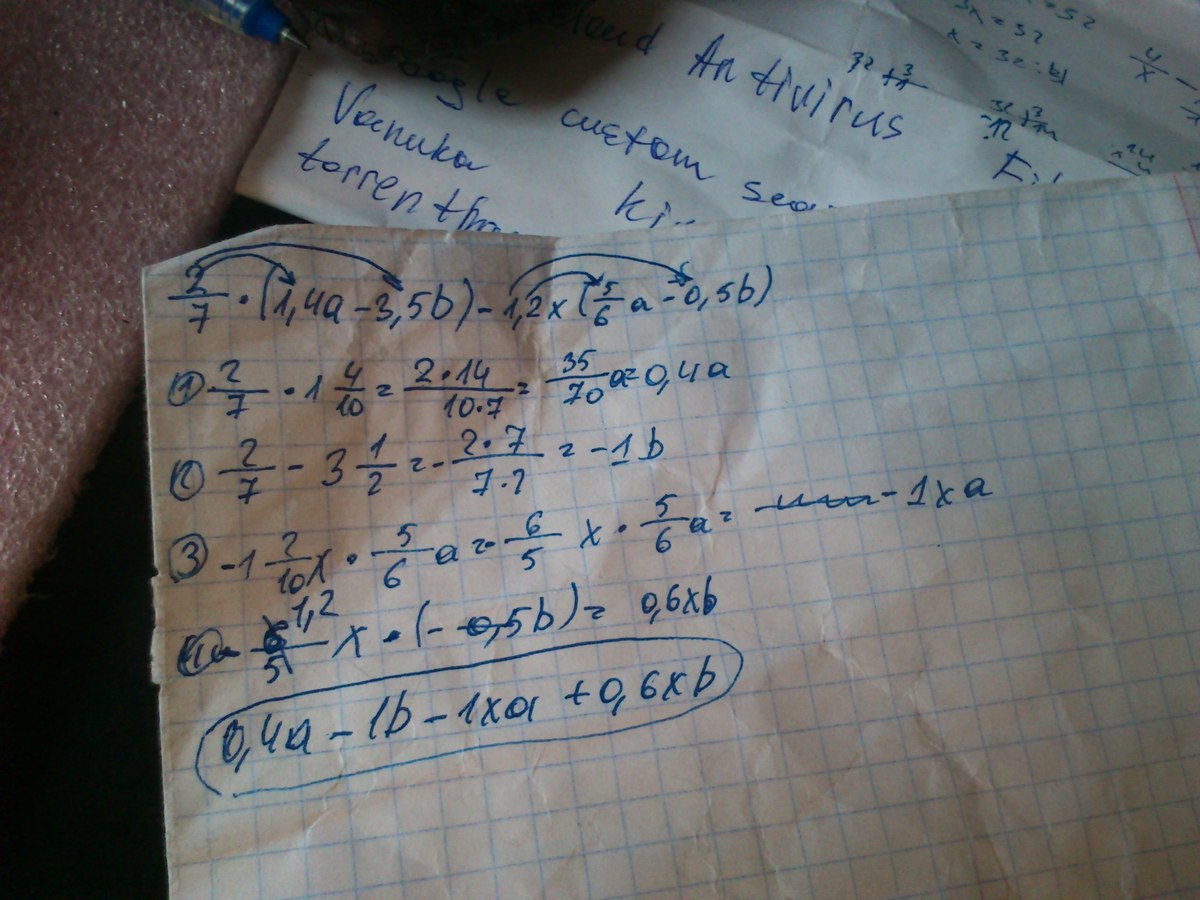 land Antivirus
ogle custom sea
Vanuka
torrent
3x = 52
x = 32 : 
2/7 · (1,4a - 3,5b) - 1,2x (5/6 a - 0,5b)
① 2/7 · 1 4/10 = 2·14/10·7 = 35/70 a = 0,4a
② 2/7 - 3 1/2 = - 2·7/7·2 = -1b
③ -1 2/10 x · 5/6 a = - 6/5 x · 5/6 a = -1xa
1,2/5 x · (-0,5b) = 0,6xb
0,4a - 1b - 1xa + 0,6xb